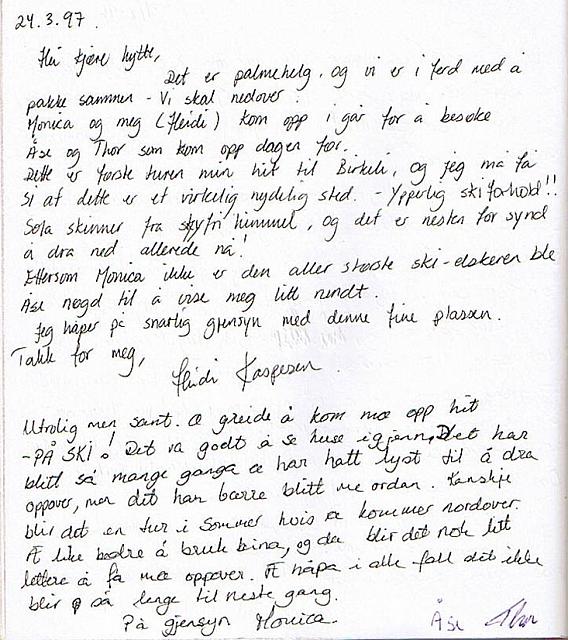 24.3.97.
Hei kjære hytte,
Det er palmehelg, og vi er i ferd med å
pakke sammen - Vi skal nedover.
Monica og meg (Heidi) kom opp i går for å besøke
Åse og Thor som kom opp dagen før.
Dette er første turen min hit til Birkeli, og jeg må få
si at dette er et virkelig nydelig sted. - Ypperlig skiforhold!!
Sola skinner fra skyfri himmel, og det er nesten for synd
å dra ned allerede nå!
Ettersom Monica ikke er den aller største ski-elskeren ble
Åse nøgd til å vise meg litt rundt.
Jeg håper på snarlig gjensyn med denne fine plassen.
Takk for meg,
Heidi Kaspersen.
Utrolig men sant. Æ greide å kom mæ opp hit
- PÅ SKI! Det va godt å se huse igjenn, Det har
blitt så mange ganga æ har hatt lyst til å dra
oppover, men det har bærre blitt me ordan. Kanskje
blir det en tur i Sommer hvis æ kommer nordover.
Æ like bedre å bruk beina, og da blir det nok litt
lettere å få mæ oppover. Æ håpa i alle fall det ikke
blir så lenge til neste gang.
På gjensyn Monica.
Åse Thor